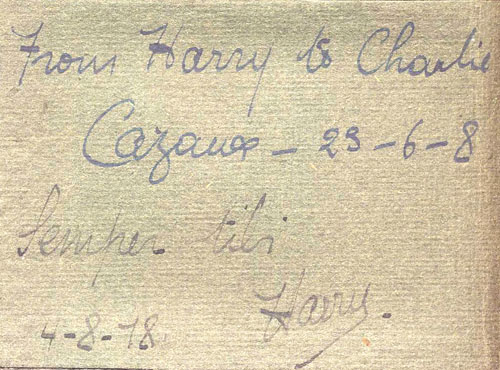 From Harry to Charlie
Cazaux - 23-6-8
Semper tibi
Harry.
4-8-18.